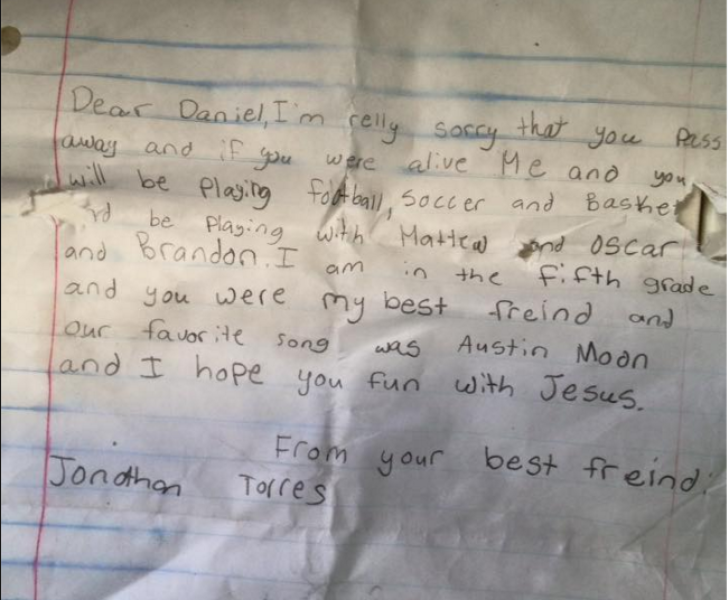 Dear Daniel, I'm relly sorry that you pass
away and if you were alive Me and you
will be Playing football, soccer and Basket
be Playing with Mattew and Oscar
and Brandon. I am in the fifth grade
and you were my best freind and
our favorite song was Austin Moon
and I hope you fun with Jesus.
From your best freind.
Jonathan Torres